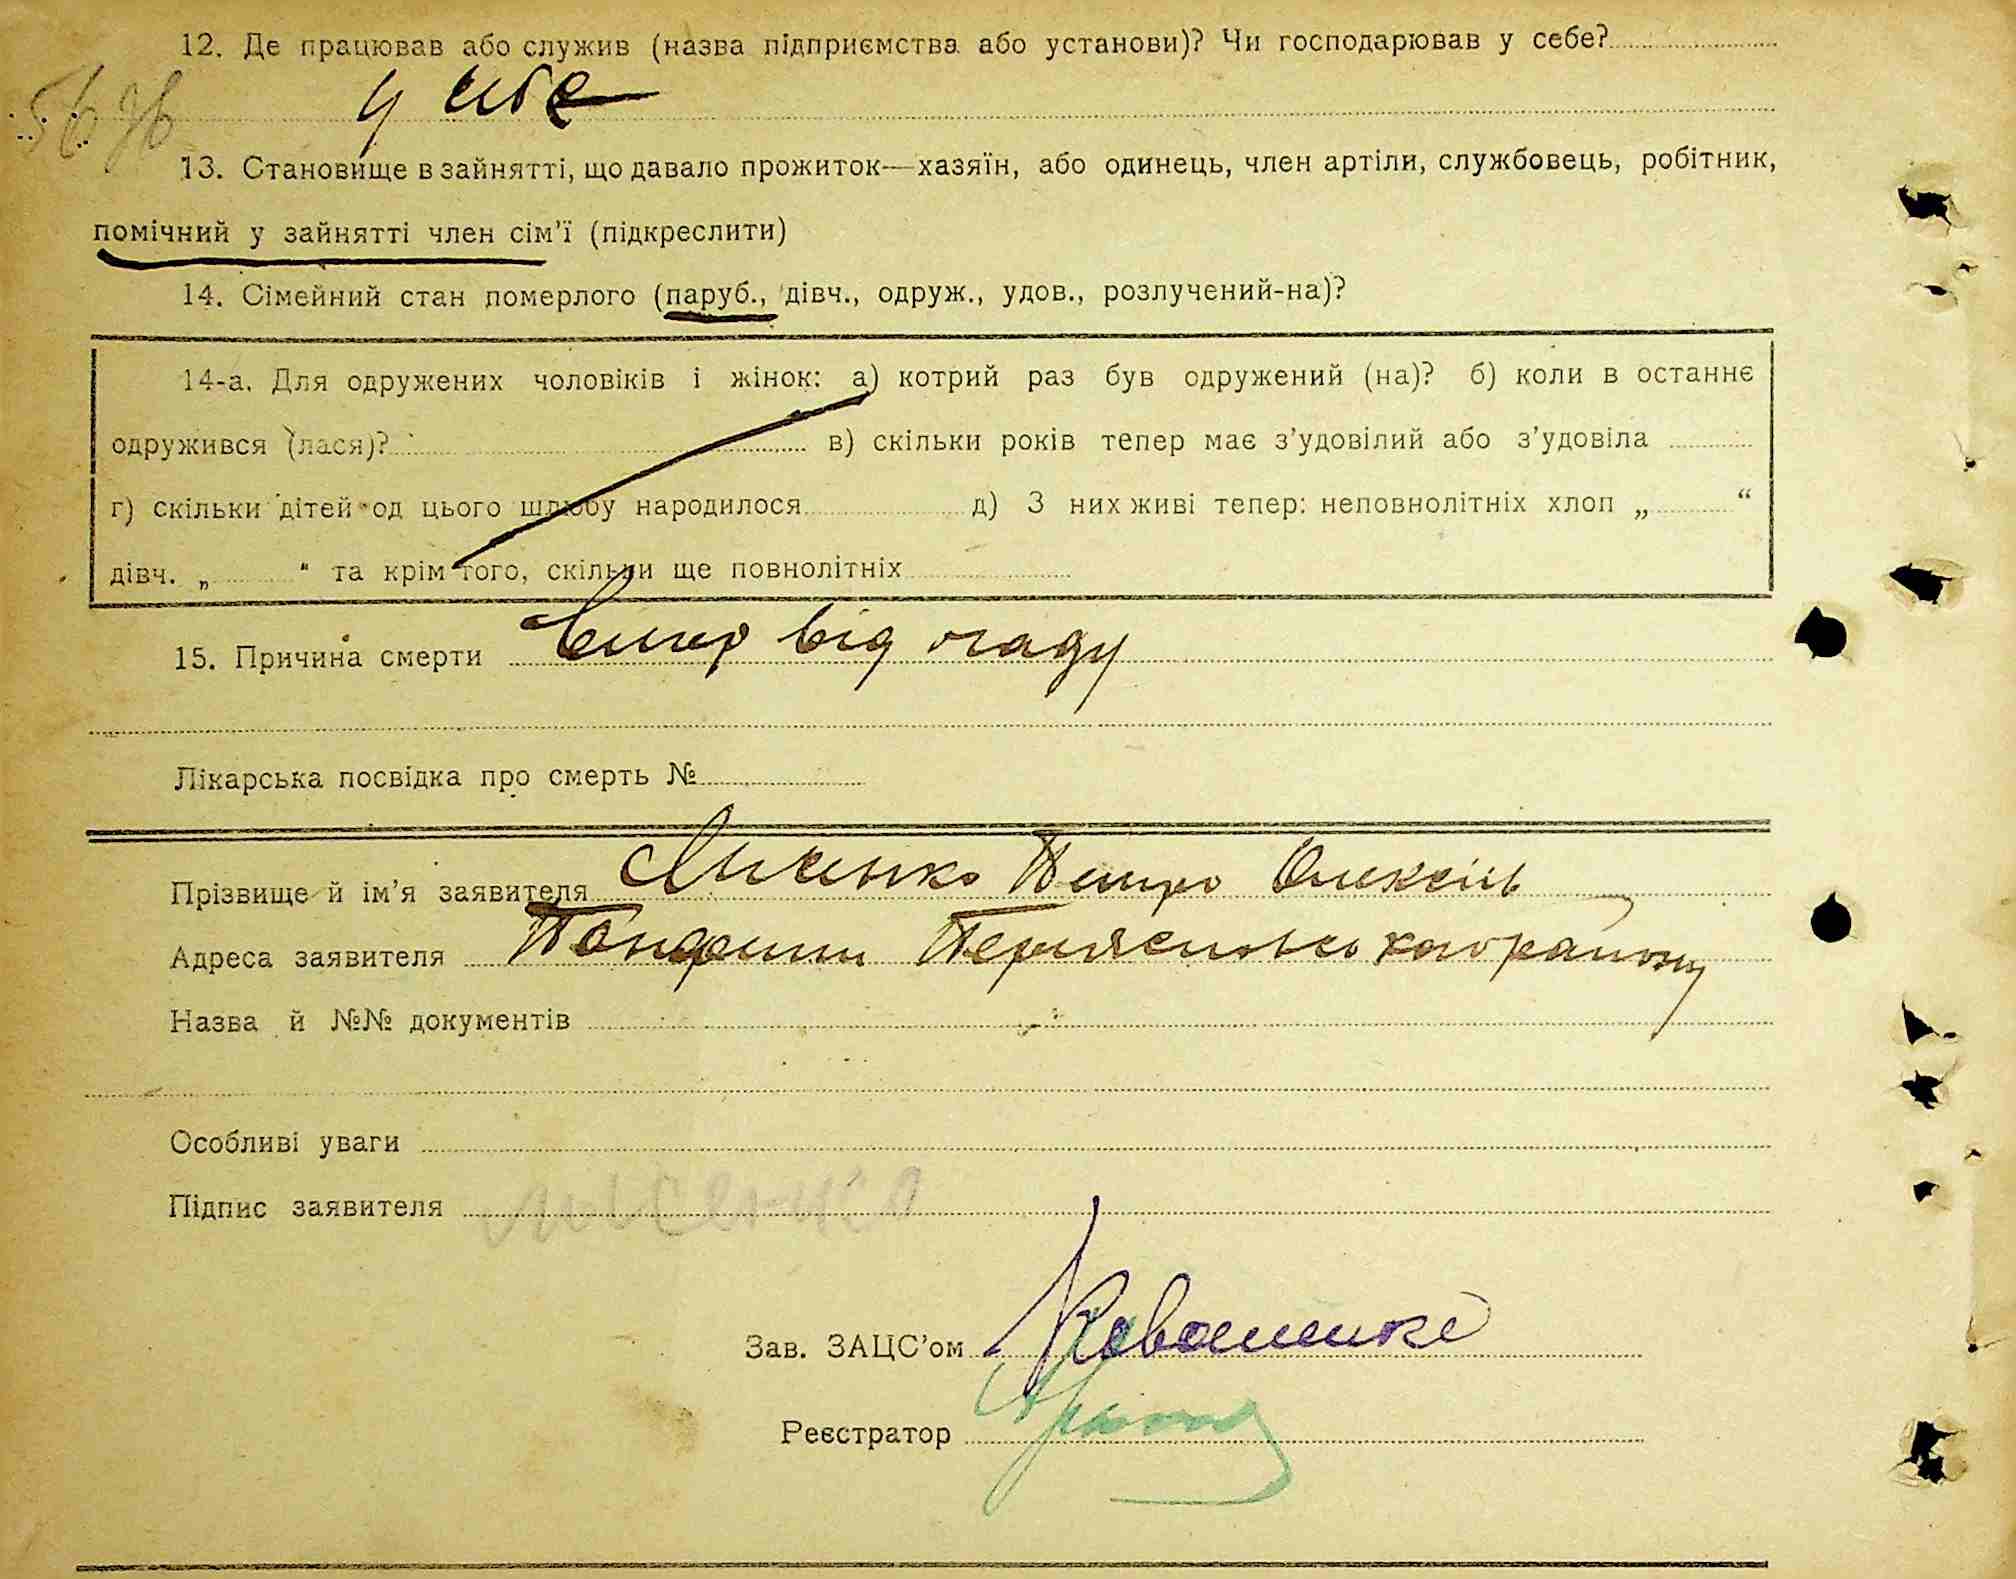 12. Де працював або служив (назва підприємства або установи)? Чи господарював у себе?
у себе
13. Становище в зайнятті, що давало прожиток—хазяїн, або одинець, член артіли, службовець, робітник,
помічний у зайнятті член сім'ї (підкреслити)
14. Сімейний стан померлого (паруб., дівч., одруж., удов., розлучений-на)?
14-а. Для одружених чоловіків і жінок: а) котрий раз був одружений (на)? б) коли в останнє
одружився (лася)? в) скільки років тепер має з'удовілий або з'удовіла
г) скільки дітей од цього шлюбу народилося д) З них живі тепер: неповнолітніх хлоп „ “
дівч. „ “ та крім того, скільки ще повнолітніх
15. Причина смерти від
Лікарська посвідка про смерть №
Прізвище й ім'я заявителя Лисенко Петро Олексіїв
Адреса заявителя району
Назва й №№ документів
Особливі уваги
Підпис заявителя Лисенко
Зав. ЗАЦС'ом Коваленко
Реєстратор